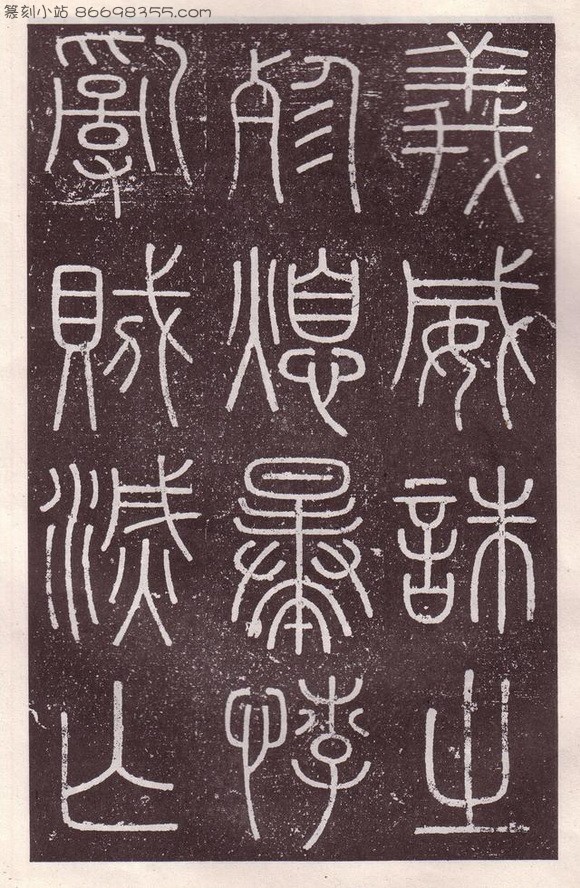 篆刻小站 86698355.com
義威誅之
殄熄暴悖
亂賊滅亡